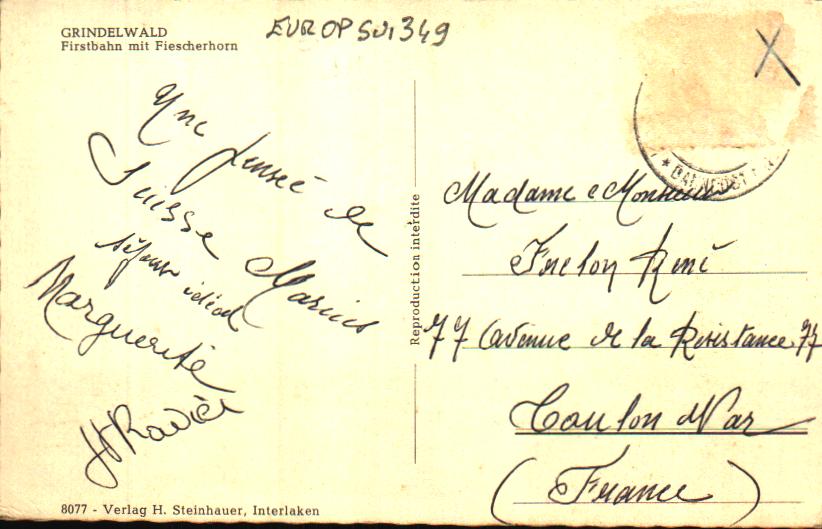 GRINDELWALD
Firstbahn mit Fiescherhorn
EUROPSUI349
X
Une pensée de
Suisse Marius
séjour idéal
Marguerite
Reproduction interdite
Madame e Monsieur
René
77 Avenue de la Résistance 77
Toulon Var
(France)
8077 - Verlag H. Steinhauer, Interlaken